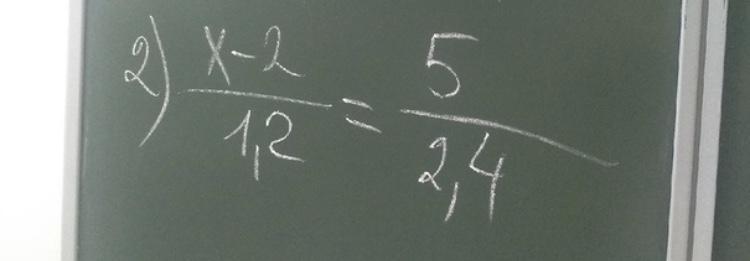 2) x-2/1,2 = 5/2,4